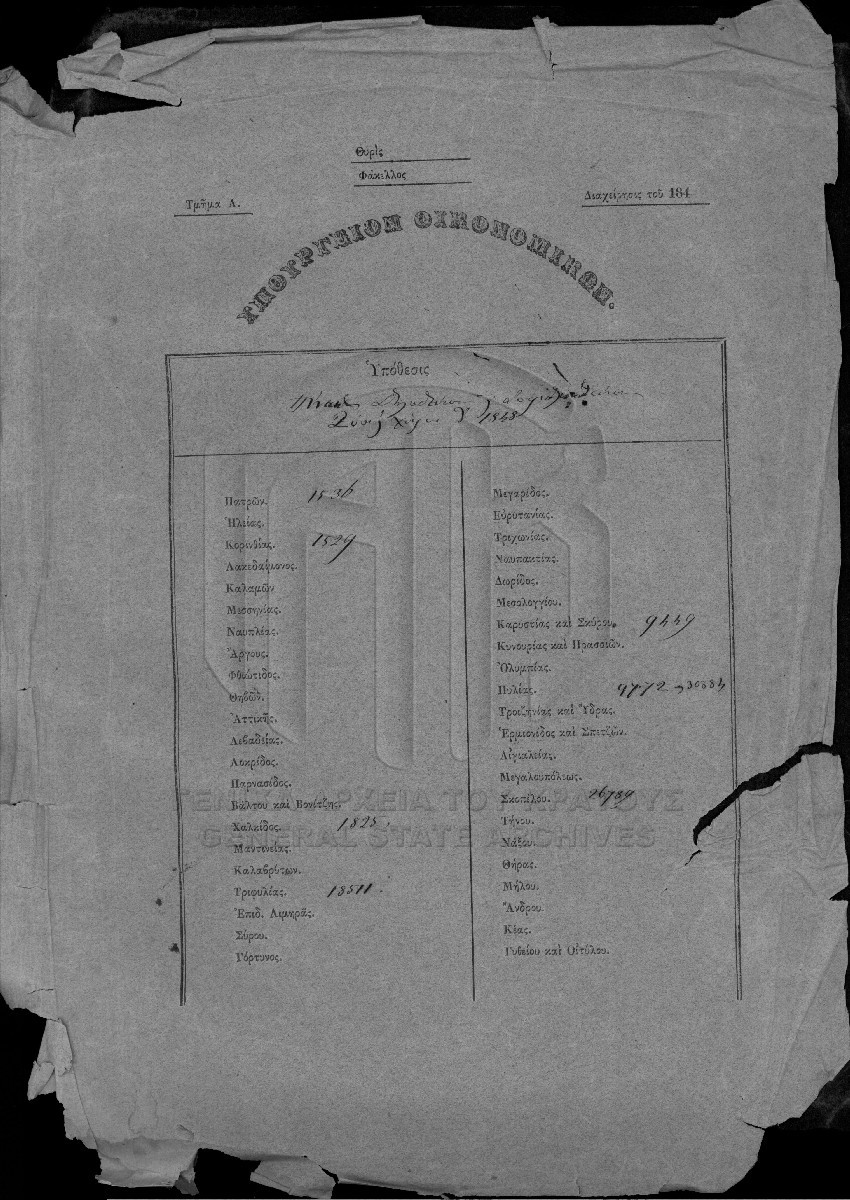 Θυρὶς
Φάκελλος
Τμῆμα Α.
Διαχείρησις τοῦ 184
ΥΠΟΥΡΓΕΙΟΝ ΟΙΚΟΝΟΜΙΚΩΝ.
Ὑπόθεσις
1848
Πατρῶν. 1536
Ἠλείας.
Κορινθίας. 1529
Λακεδαίμονος.
Καλαμῶν
Μεσσηνίας.
Ναυπλίας.
Ἄργους.
Φθιώτιδος.
Θηβῶν.
Ἀττικῆς.
Λεβαδείας.
Λοκρίδος.
Παρνασίδος.
Βάλτου καὶ Βονίτζης.
Χαλκίδος. 1825.
Μαντινείας.
Καλαβρύτων.
Τριφυλίας. 18511.
Ἐπιδ. Λιμηρᾶς.
Σύρου.
Γόρτυνος.
Μεγαρίδος.
Εὐρυτανίας.
Τριχωνίας.
Ναυπακτίας.
Δωρίδος.
Μεσολογγίου.
Καρυστίας καὶ Σκύρου. 9449
Κυνουρίας καὶ Πρασσιῶν.
Ὀλυμπίας.
Πυλίας. 9772 30884
Τροιζηνίας καὶ Ὕδρας.
Ἑρμιονίδος καὶ Σπετζῶν.
Αἰγιαλείας.
Μεγαλουπόλεως.
Σκοπέλου. 26789
Τήνου.
Νάξου.
Θήρας.
Μήλου.
Ἄνδρου.
Κέας.
Γυθείου καὶ Οἰτύλου.
ΓΕΝΙΚΑ ΑΡΧΕΙΑ ΤΟΥ ΚΡΑΤΟΥΣ
GENERAL STATE ARCHIVES